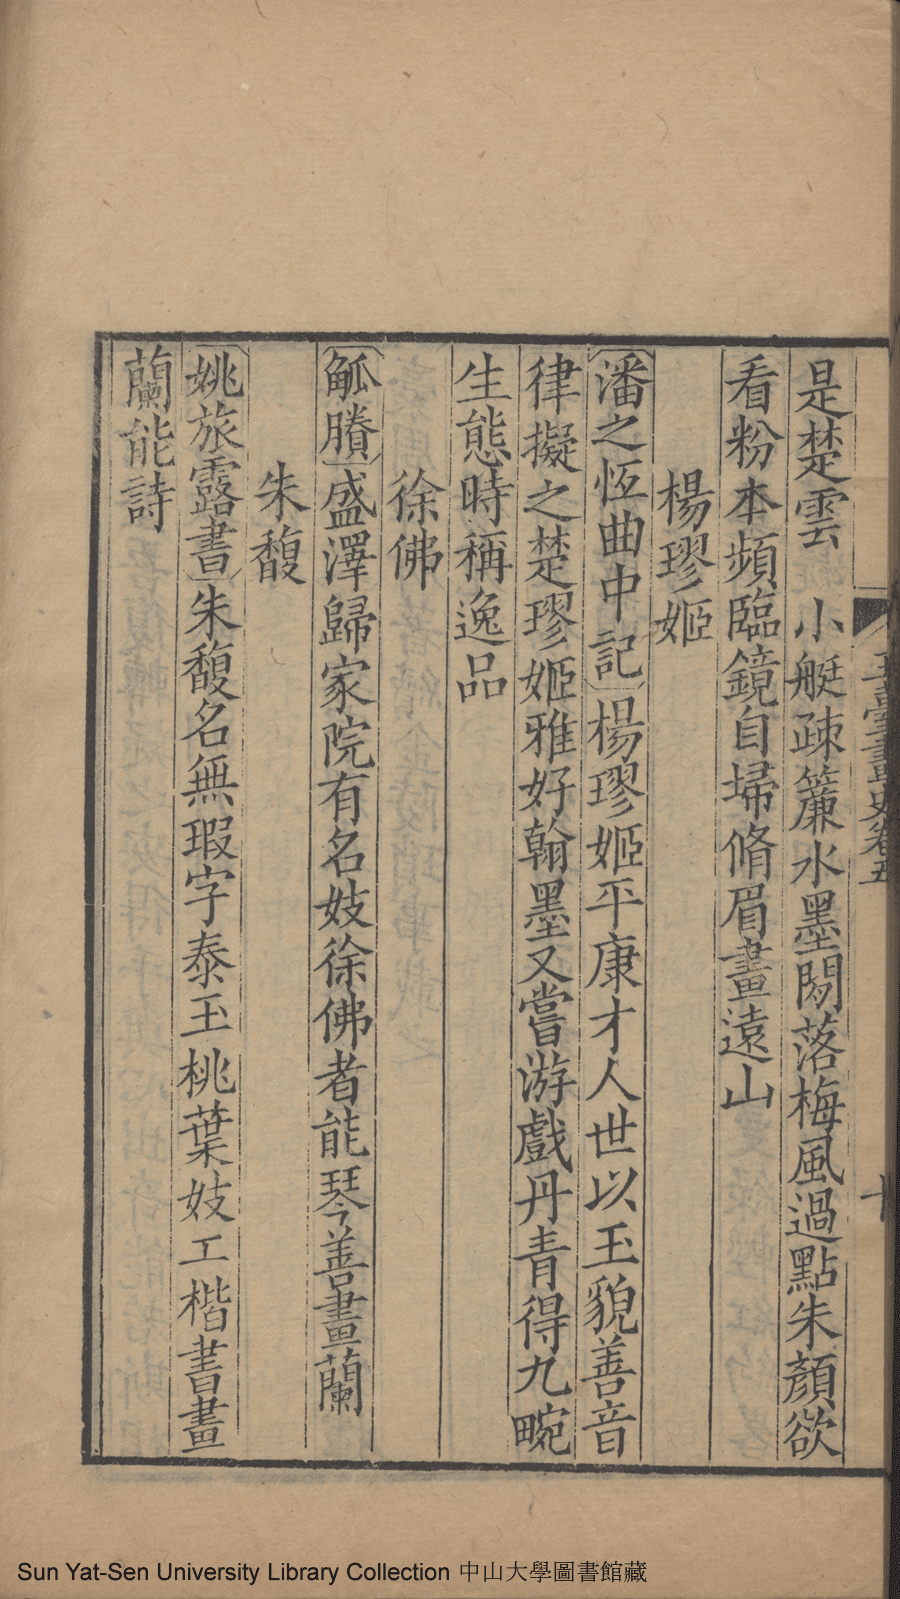 玉臺畫史卷五
是楚雲　小艇疎簾水墨閒落梅風過點朱顏欲
看粉本頻臨鏡自埽脩眉畫遠山
楊璆姬
潘之恆曲中記楊璆姬平康才人世以玉貌善音
律擬之楚璆姬雅好翰墨又嘗游戲丹青得九畹
生態時稱逸品
徐佛
觚賸盛澤歸家院有名妓徐佛者能琴善畫蘭
朱馥
姚旅露書朱馥名無瑕字泰玉桃葉妓工楷書畫
蘭能詩
Sun Yat-Sen University Library Collection 中山大學圖書館藏